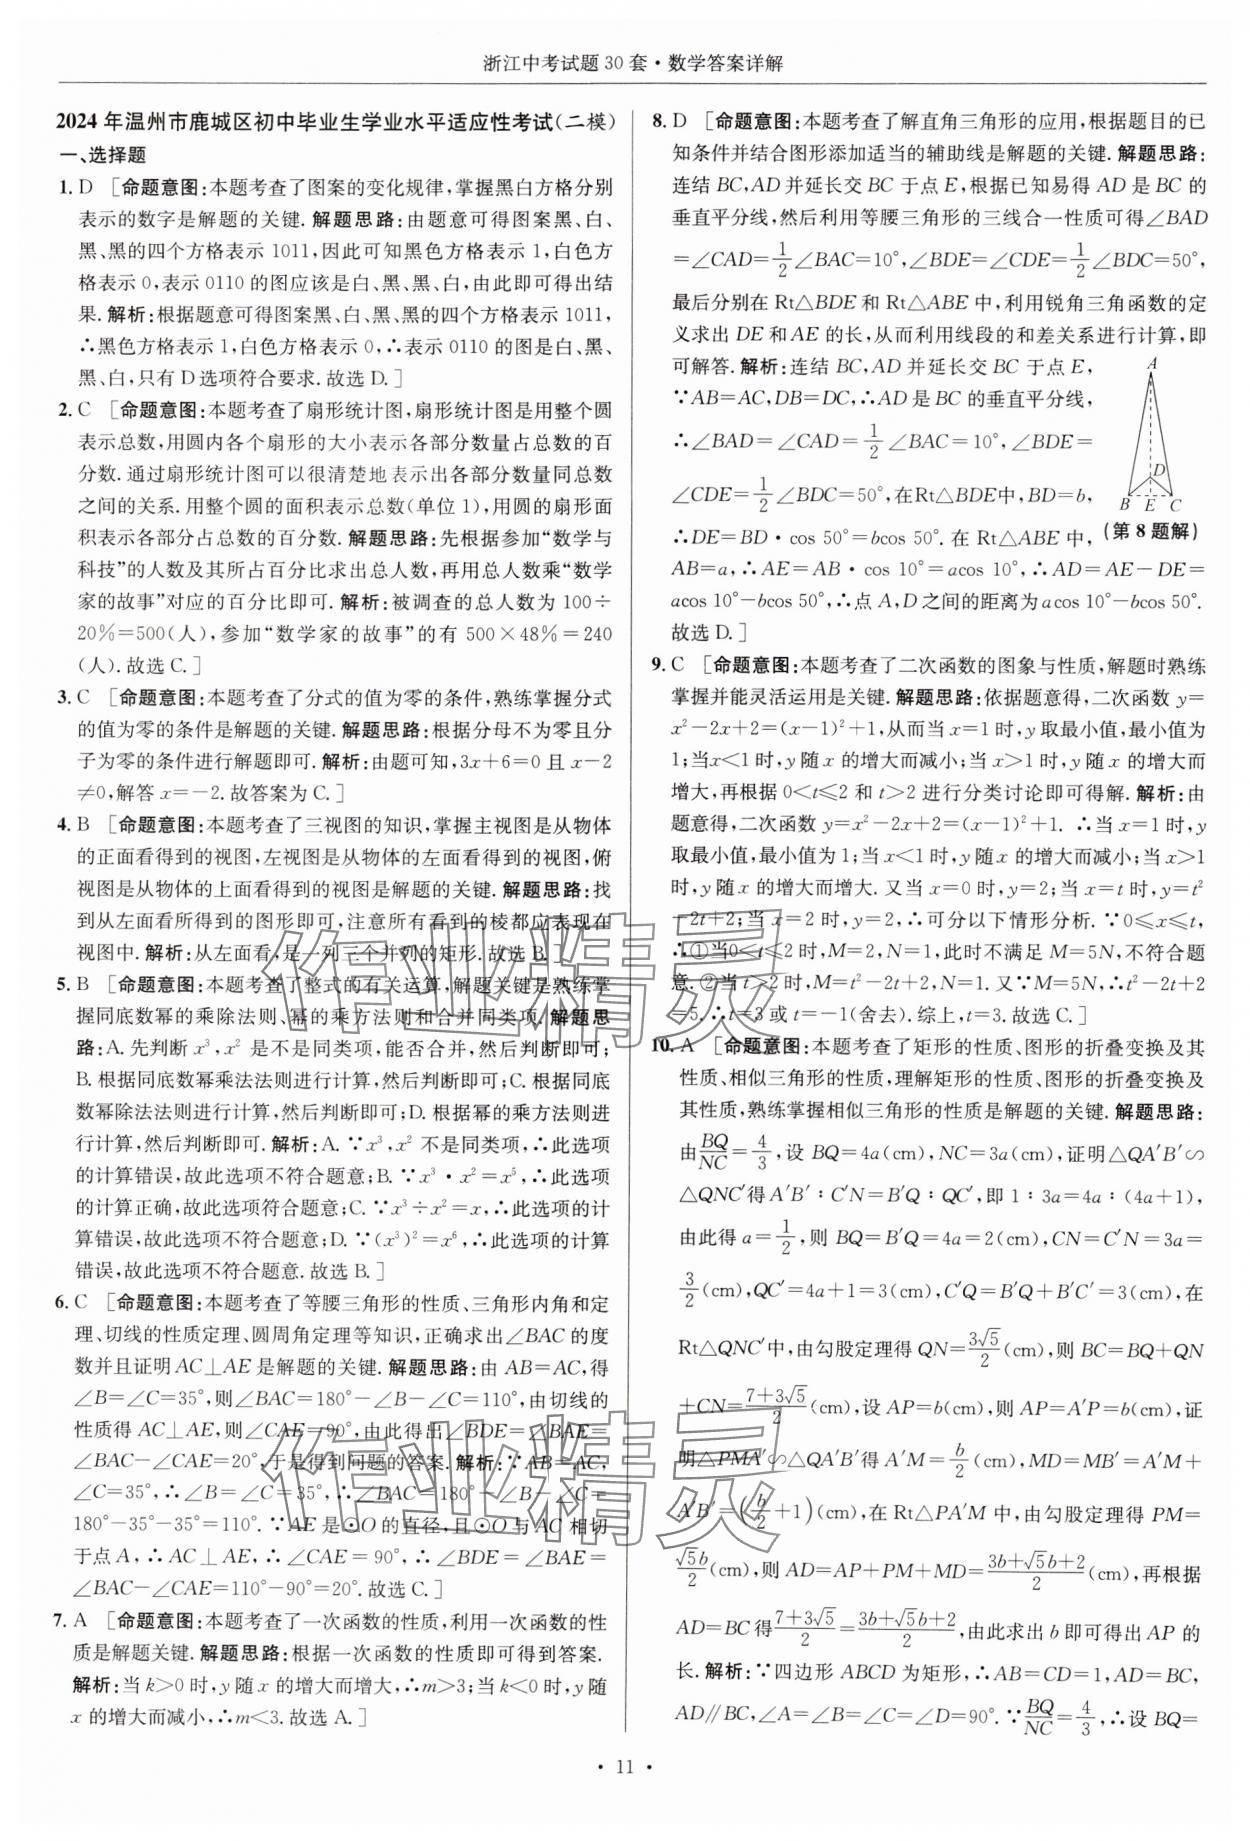 浙江中考试题30套·数学答案详解
2024年温州市鹿城区初中毕业生学业水平适应性考试(二模)
一、选择题
1. D [命题意图:本题考查了图案的变化规律,掌握黑白方格分别
表示的数字是解题的关键.解题思路:由题意可得图案黑、白、
黑、黑的四个方格表示1011,因此可知黑色方格表示1,白色方
格表示0,表示0110的图应该是白、黑、黑、白,由此即可得出结
果.解析:根据题意可得图案黑、白、黑、黑的四个方格表示1011,
∴黑色方格表示1,白色方格表示0,∴表示0110的图是白、黑、
黑、白,只有D选项符合要求.故选D.]
2. C [命题意图:本题考查了扇形统计图,扇形统计图是用整个圆
表示总数,用圆内各个扇形的大小表示各部分数量占总数的百
分数.通过扇形统计图可以很清楚地表示出各部分数量同总数
之间的关系.用整个圆的面积表示总数(单位1),用圆的扇形面
积表示各部分占总数的百分数.解题思路:先根据参加“数学与
科技”的人数及其所占百分比求出总人数,再用总人数乘“数学
家的故事”对应的百分比即可.解析:被调查的总人数为100÷
20%=500(人),参加“数学家的故事”的有500×48%=240
(人).故选C.]
3. C [命题意图:本题考查了分式的值为零的条件,熟练掌握分式
的值为零的条件是解题的关键.解题思路:根据分母不为零且分
子为零的条件进行解题即可.解析:由题可知,3x+6=0且x-2
≠0,解答x=-2.故答案为C.]
4. B [命题意图:本题考查了三视图的知识,掌握主视图是从物体
的正面看得到的视图,左视图是从物体的左面看得到的视图,俯
视图是从物体的上面看得到的视图是解题的关键.解题思路:找
到从左面看所得到的图形即可,注意所有看到的棱都应表现在
视图中.解析:从左面看,是一列三个并列的矩形.故选B.]
5. B [命题意图:本题考查了整式的有关运算,解题关键是熟练掌
握同底数幂的乘除法则、幂的乘方法则和合并同类项.解题思
路:A.先判断x³,x²是不是同类项,能否合并,然后判断即可;
B.根据同底数幂乘法法则进行计算,然后判断即可;C.根据同底
数幂除法法则进行计算,然后判断即可;D.根据幂的乘方法则进
行计算,然后判断即可.解析:A.∵x³,x²不是同类项,∴此选项
的计算错误,故此选项不符合题意;B.∵x³·x²=x⁵,∴此选项的
计算正确,故此选项符合题意;C.∵x³÷x²=x,∴此选项的计
算错误,故此选项不符合题意;D.∵(x³)²=x⁶,∴此选项的计算
错误,故此选项不符合题意.故选B.]
6. C [命题意图:本题考查了等腰三角形的性质、三角形内角和定
理、切线的性质定理、圆周角定理等知识,正确求出∠BAC的度
数并且证明AC⊥AE是解题的关键.解题思路:由AB=AC,得
∠B=∠C=35°,则∠BAC=180°-∠B-∠C=110°,由切线的
性质得AC⊥AE,则∠CAE=90°,由此得出∠BDE=∠BAE=
∠BAC-∠CAE=20°,于是得到问题的答案.解析:∵AB=AC,
∠C=35°,∴∠B=∠C=35°,∴∠BAC=180°-∠B-∠C=
180°-35°-35°=110°.∵AE是⊙O的直径,且⊙O与AC相切
于点A,∴AC⊥AE,∴∠CAE=90°,∴∠BDE=∠BAE=
∠BAC-∠CAE=110°-90°=20°.故选C.]
7. A [命题意图:本题考查了一次函数的性质,利用一次函数的性
质是解题关键.解题思路:根据一次函数的性质即可得到答案.
解析:当k>0时,y随x的增大而增大,∴m>3;当k<0时,y随
x的增大而减小,∴m<3.故选A.]
8. D [命题意图:本题考查了解直角三角形的应用,根据题目的已
知条件并结合图形添加适当的辅助线是解题的关键.解题思路:
连结BC,AD并延长交BC于点E,根据已知易得AD是BC的
垂直平分线,然后利用等腰三角形的三线合一性质可得∠BAD
=∠CAD=1/2∠BAC=10°,∠BDE=∠CDE=1/2∠BDC=50°,
最后分别在Rt△BDE和Rt△ABE中,利用锐角三角函数的定
义求出DE和AE的长,从而利用线段的和差关系进行计算,即
可解答.解析:连结BC,AD并延长交BC于点E,
∵AB=AC,DB=DC,∴AD是BC的垂直平分线,
∴∠BAD=∠CAD=1/2∠BAC=10°,∠BDE=
∠CDE=1/2∠BDC=50°,在Rt△BDE中,BD=b,
∴DE=BD·cos 50°=bcos 50°.在Rt△ABE中,
A
D
B E C
(第8题解)
AB=a,∴AE=AB·cos 10°=acos 10°,∴AD=AE-DE=
acos 10°-bcos 50°,∴点A,D之间的距离为acos 10°-bcos 50°.
故选D.]
9. C [命题意图:本题考查了二次函数的图象与性质,解题时熟练
掌握并能灵活运用是关键.解题思路:依据题意得,二次函数y=
x²-2x+2=(x-1)²+1,从而当x=1时,y取最小值,最小值为
1;当x<1时,y随x的增大而减小;当x>1时,y随x的增大而
增大,再根据0<t≤2和t>2进行分类讨论即可得解.解析:由
题意得,二次函数y=x²-2x+2=(x-1)²+1.∴当x=1时,y
取最小值,最小值为1;当x<1时,y随x的增大而减小;当x>1
时,y随x的增大而增大.又当x=0时,y=2;当x=t时,y=t²
-2t+2;当x=2时,y=2,∴可分以下情形分析.∵0≤x≤t,
∴①当0<t≤2时,M=2,N=1,此时不满足M=5N,不符合题
意.②当t>2时,M=t²-2t+2,N=1.又∵M=5N,∴t²-2t+2
=5,∴t=3或t=-1(舍去).综上,t=3.故选C.]
10. A [命题意图:本题考查了矩形的性质、图形的折叠变换及其
性质、相似三角形的性质,理解矩形的性质、图形的折叠变换及
其性质,熟练掌握相似三角形的性质是解题的关键.解题思路:
由BQ/NC=4/3,设BQ=4a(cm),NC=3a(cm),证明△QA′B′∽
△QNC′得A′B′∶C′N=B′Q∶QC′,即1∶3a=4a∶(4a+1),
由此得a=1/2,则BQ=B′Q=4a=2(cm),CN=C′N=3a=
3/2(cm),QC′=4a+1=3(cm),C′Q=B′Q+B′C′=3(cm),在
Rt△QNC′中,由勾股定理得QN=3√5/2(cm),则BC=BQ+QN
+CN=(7+3√5)/2(cm),设AP=b(cm),则AP=A′P=b(cm),证
明△PMA′∽△QA′B′得A′M=b/2(cm),MD=MB′=A′M+
A′B′=(b/2+1)(cm),在Rt△PA′M中,由勾股定理得PM=
√5b/2(cm),则AD=AP+PM+MD=(3b+√5b+2)/2(cm),再根据
AD=BC得(7+3√5)/2=(3b+√5b+2)/2,由此求出b即可得出AP的
长.解析:∵四边形ABCD为矩形,∴AB=CD=1,AD=BC,
AD∥BC,∠A=∠B=∠C=∠D=90°.∵BQ/NC=4/3,∴设BQ=
·11·
作业精灵
作业精灵